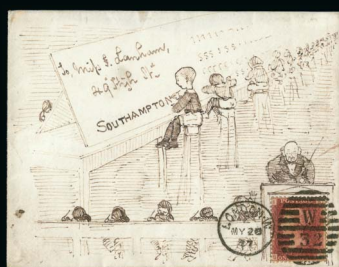 To, Miss E. Lanham,
49 High St.
SOUTHAMPTON
LONDON W
MY 28
W
32